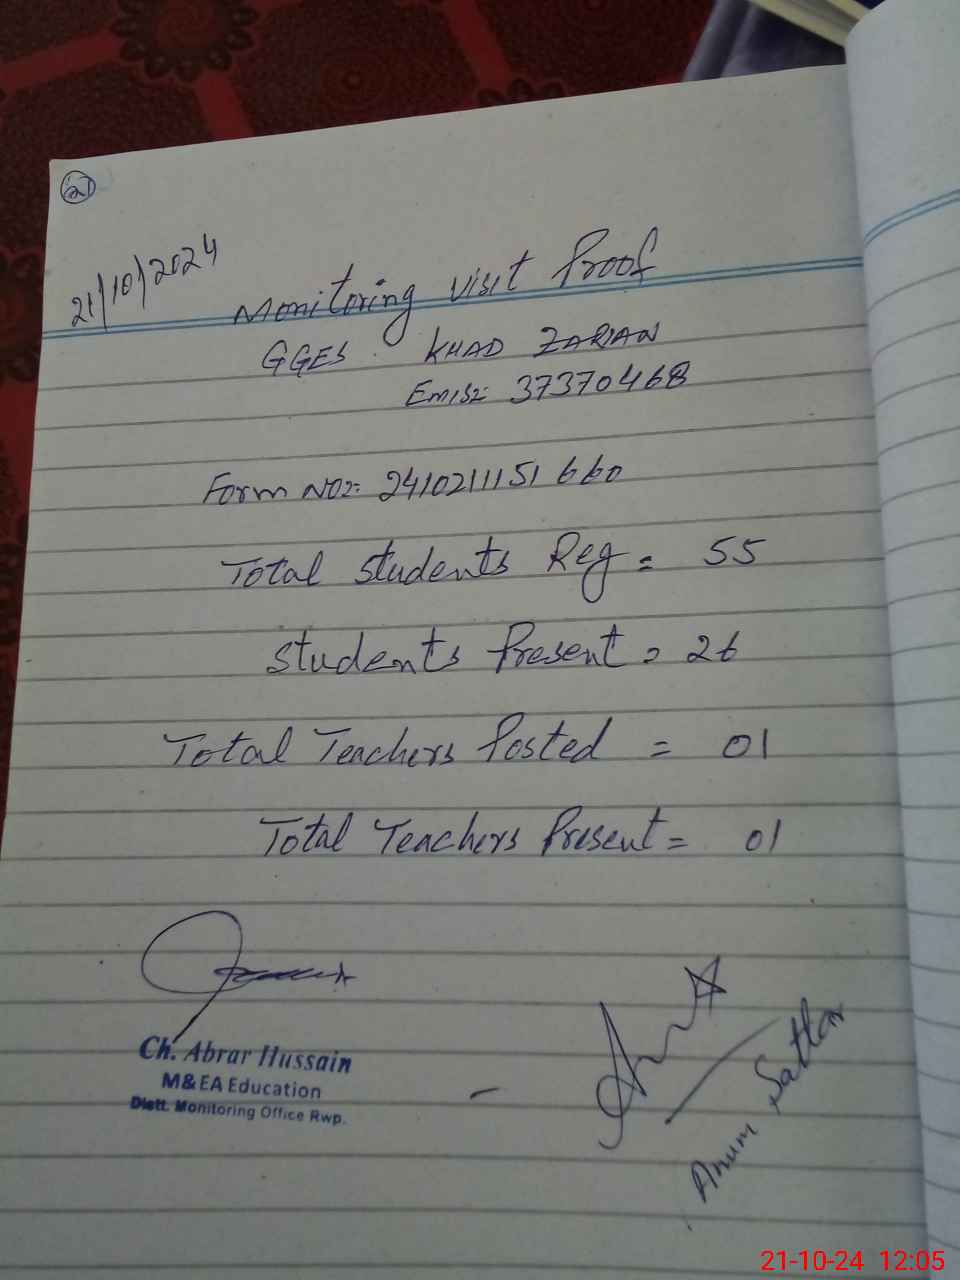 21
21/10/2024
Monitoring visit Proof
GGES KHAD ZARIAN
Emis: 37370468
Form No: 241021151660
Total Students Reg = 55
Students Present = 26
Total Teachers Posted = 01
Total Teachers Present = 01
Ch. Abrar Hussain
M&EA Education
Distt. Monitoring Office Rwp.
Anum Sattar
21-10-24 12:05